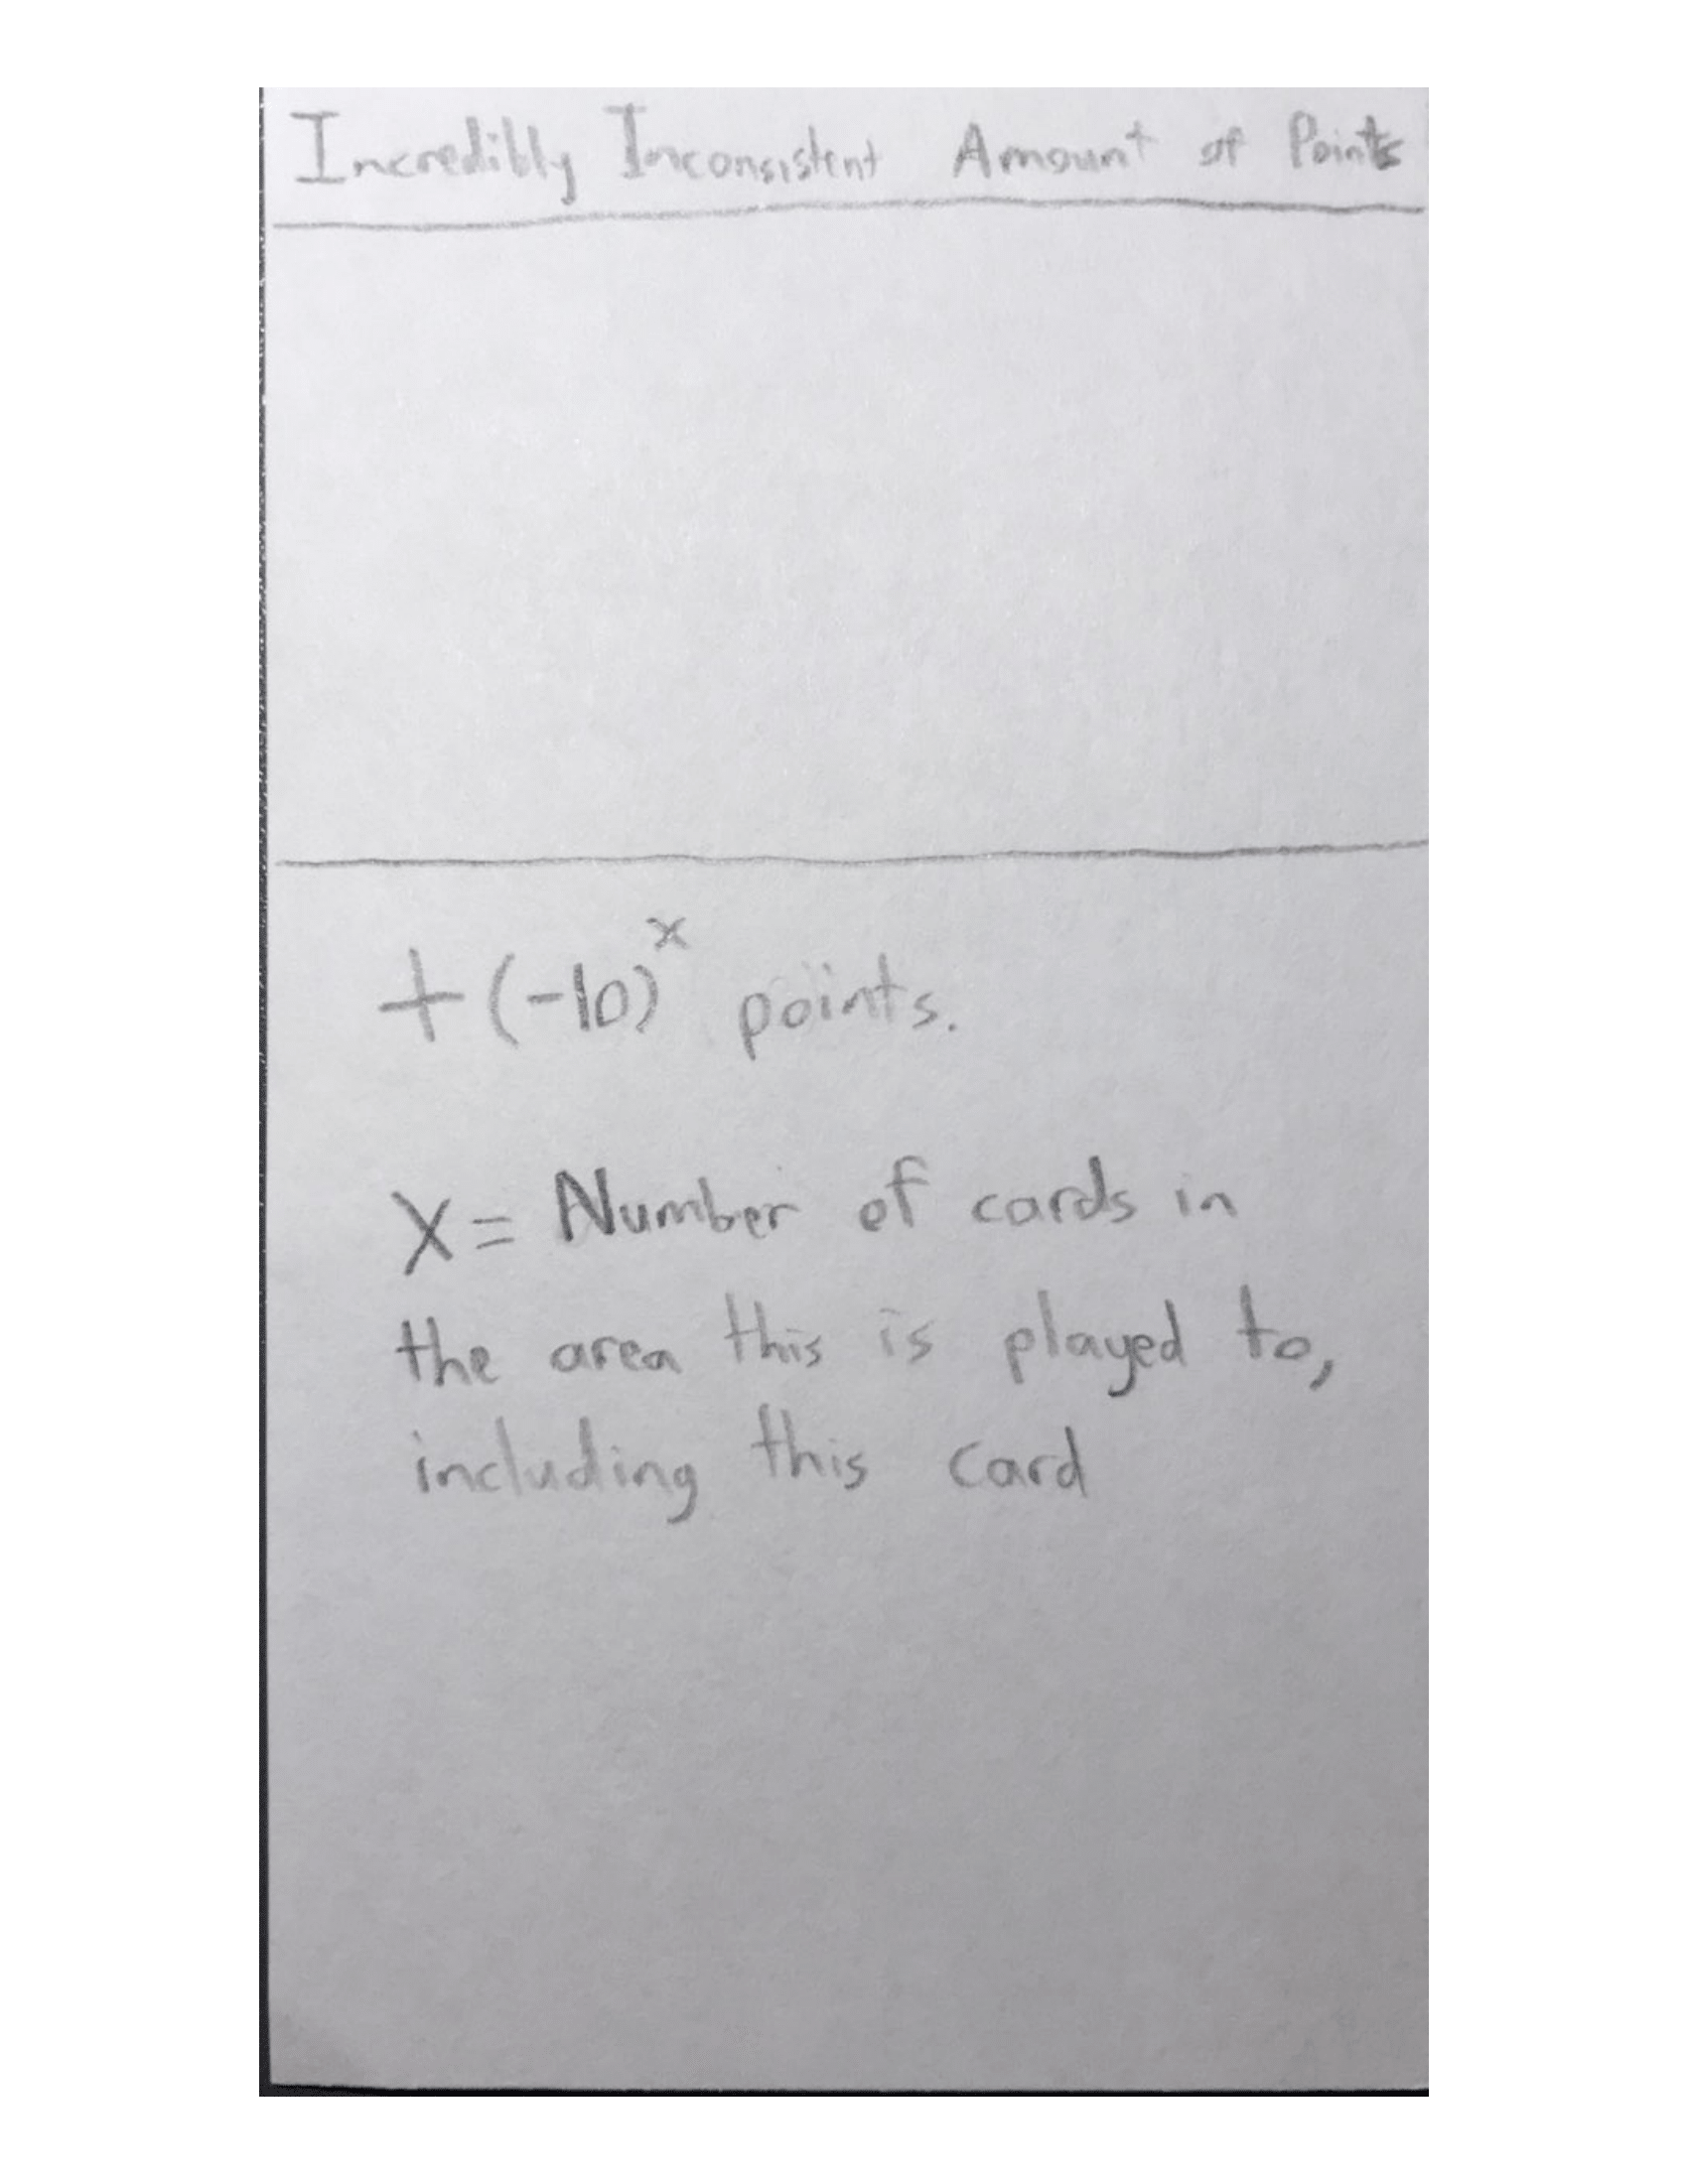 Incredibly Inconsistent Amount of Points
+(-10)^x points.
X = Number of cards in
the area this is played to,
including this card